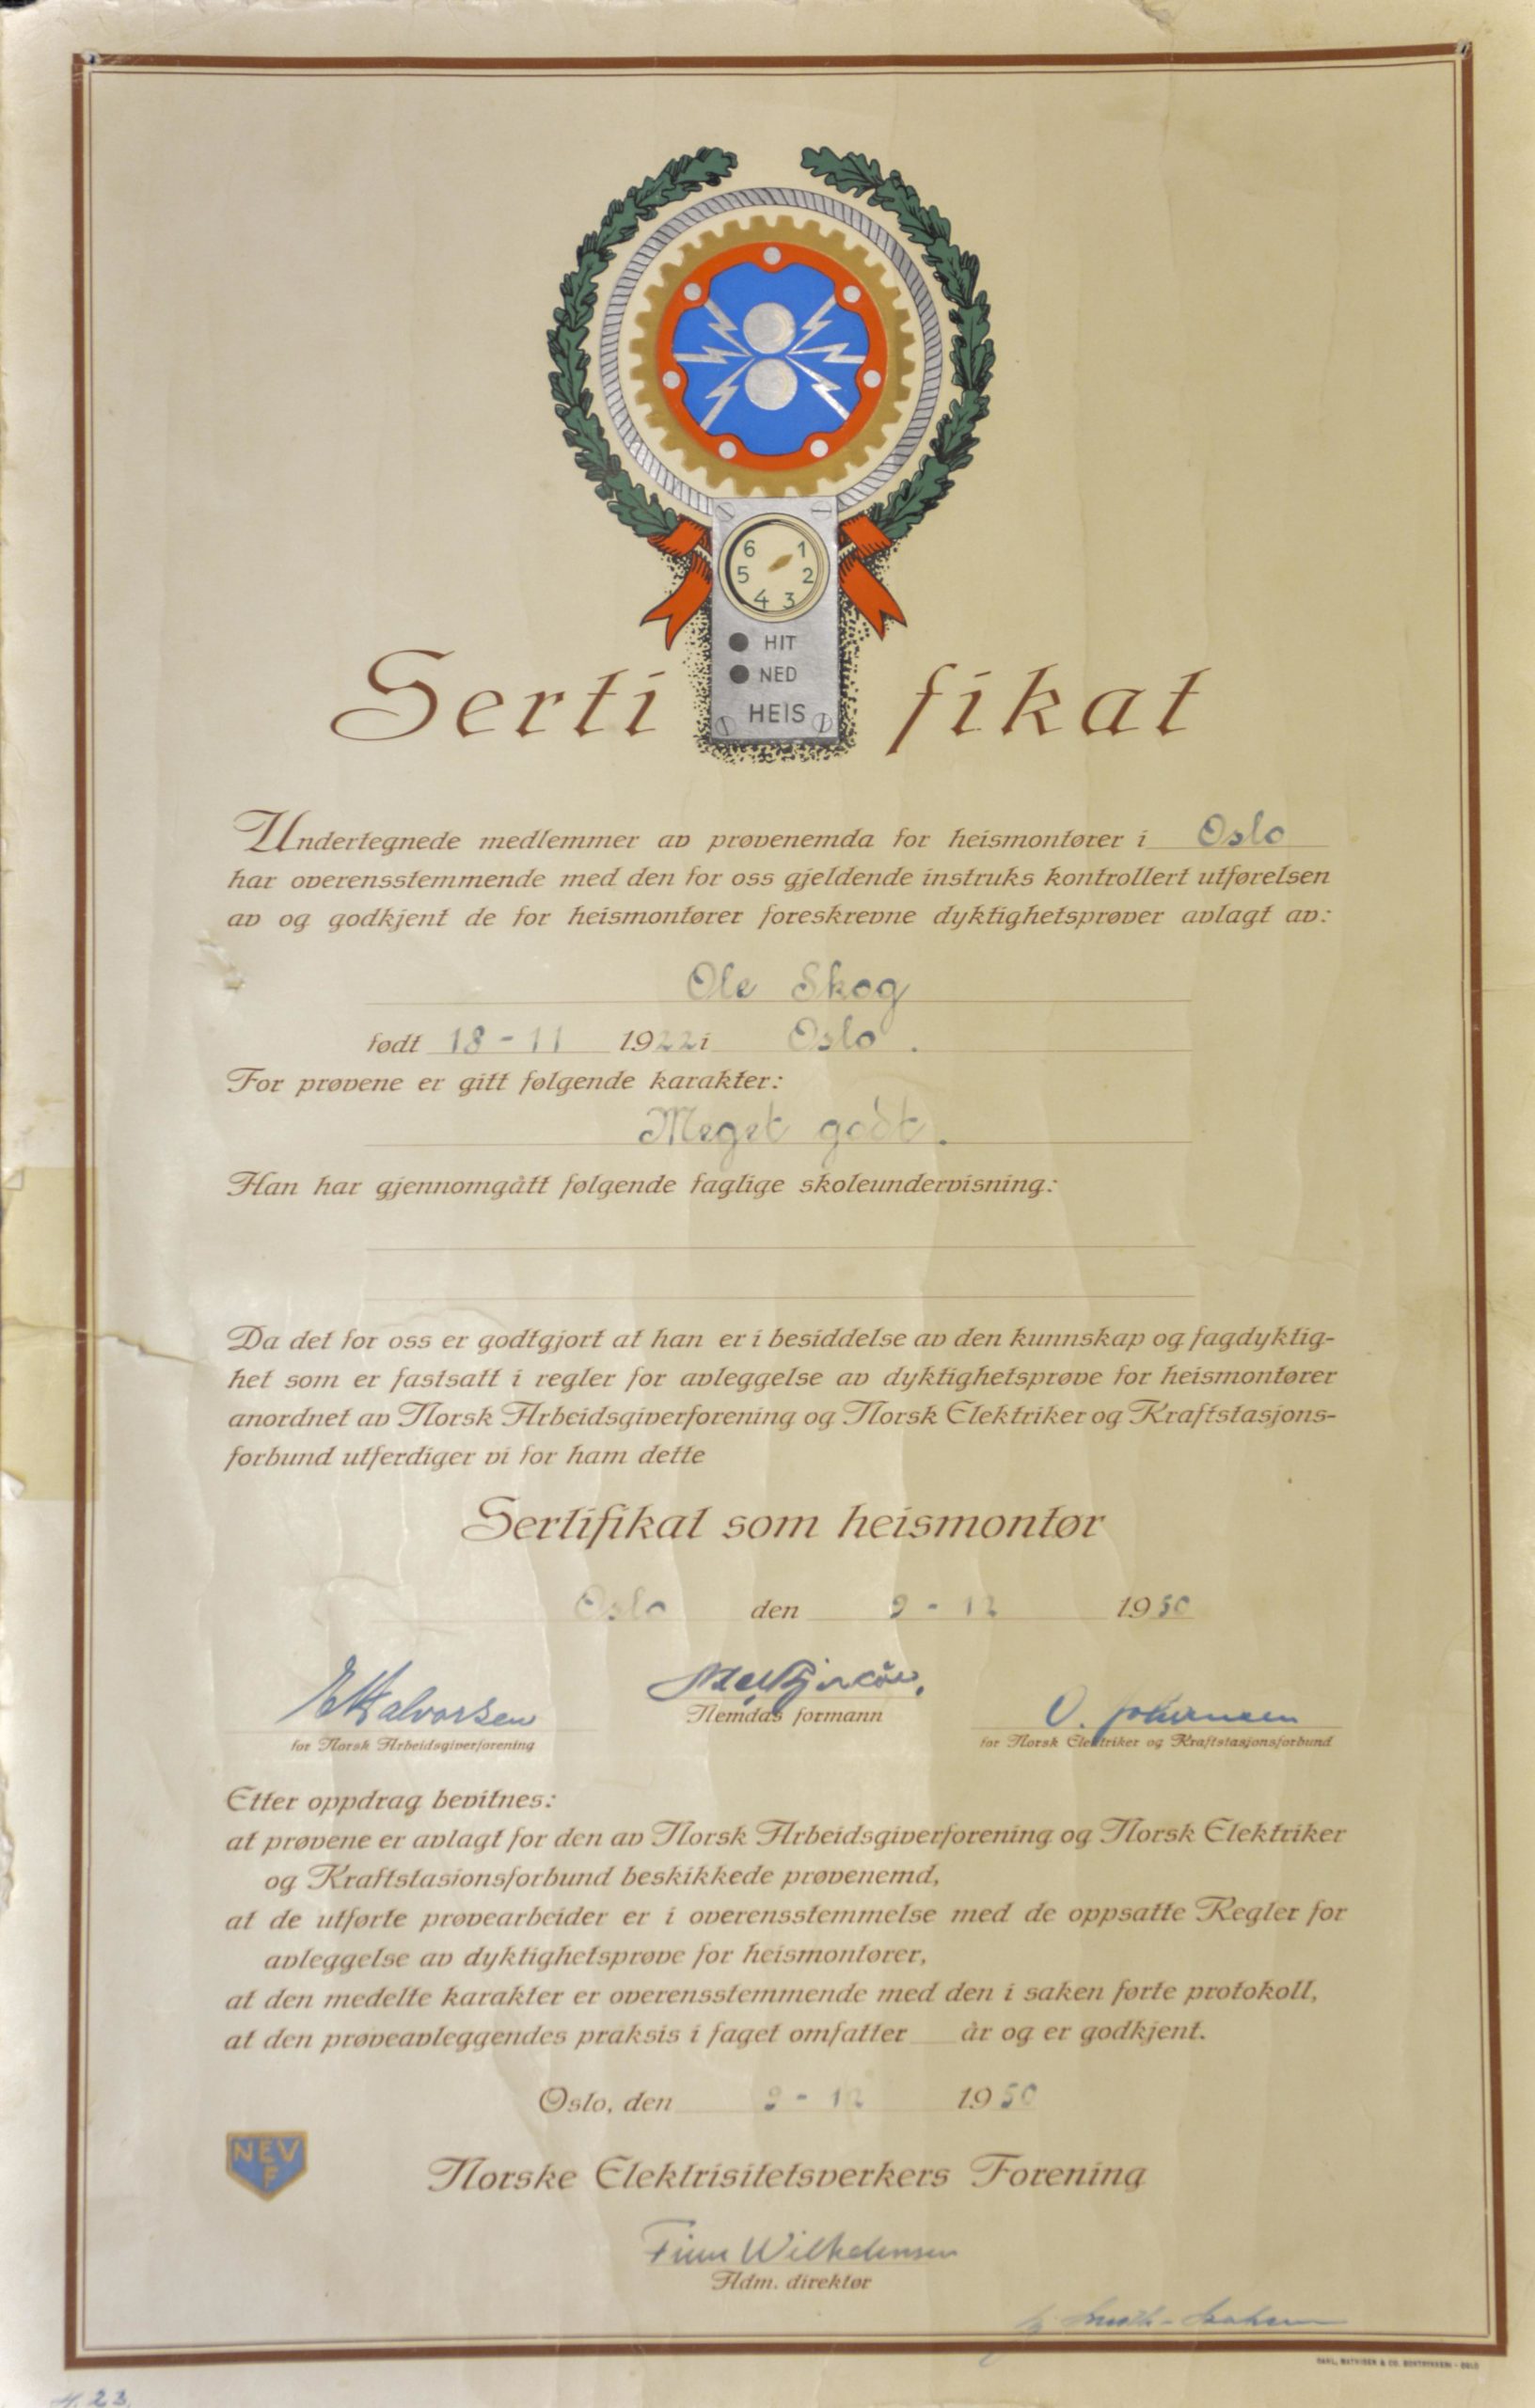 6 1
5 2
4 3
HIT
NED
HEIS
Sertifikat
Undertegnede medlemmer av prøvenemda for heismontører i Oslo
har overensstemmende med den for oss gjeldende instruks kontrollert utførelsen
av og godkjent de for heismontører foreskrevne dyktighetsprøver avlagt av:
Ole Skog
født 18-11 1922 i Oslo.
For prøvene er gitt følgende karakter:
Meget godt.
Han har gjennomgått følgende faglige skoleundervisning:
Da det for oss er godtgjort at han er i besiddelse av den kunnskap og fagdyktig-
het som er fastsatt i regler for avleggelse av dyktighetsprøve for heismontører
anordnet av Norsk Arbeidsgiverforening og Norsk Elektriker og Kraftstasjons-
forbund utferdiger vi for ham dette
Sertifikat som heismontør
Oslo den 9-12 1950
E Halvorsen
Nemdas formann
O. Johansen
for Norsk Arbeidsgiverforening
for Norsk Elektriker og Kraftstasjonsforbund
Etter oppdrag bevitnes:
at prøvene er avlagt for den av Norsk Arbeidsgiverforening og Norsk Elektriker
og Kraftstasionsforbund beskikkede prøvenemd,
at de utførte prøvearbeider er i overensstemmelse med de oppsatte Regler for
avleggelse av dyktighetsprøve for heismontører,
at den medelte karakter er overensstemmende med den i saken førte protokoll,
at den prøveavleggendes praksis i faget omfatter år og er godkjent.
Oslo, den 9-12 1950
NEVF
Norske Elektrisitetsverkers Forening
Finn Wilhelmsen
Adm. direktør
23